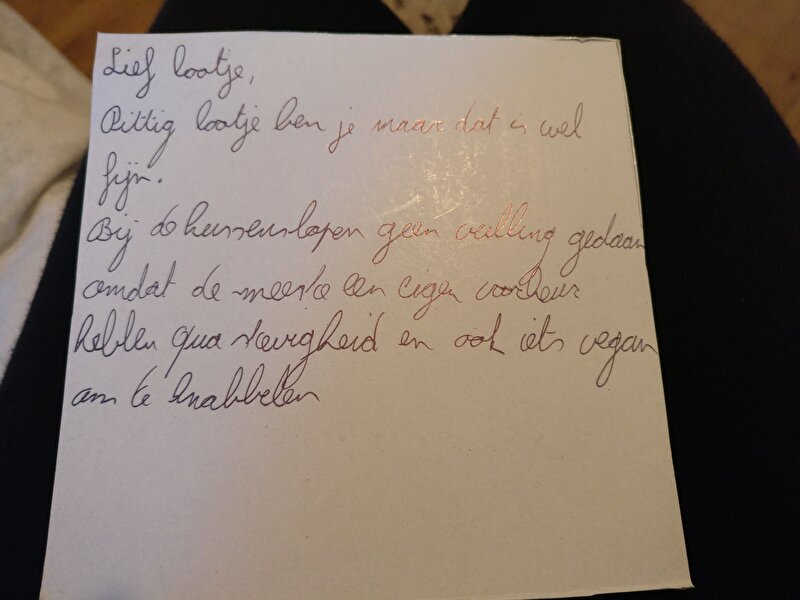 Lief lootje,
Pittig lootje ben je maar dat is wel
fijn.
Bij de kussenslopen geen vulling gedaan
omdat de meeste een eigen voorkeur
hebben qua stevigheid en ook iets vegan
om te knabbelen